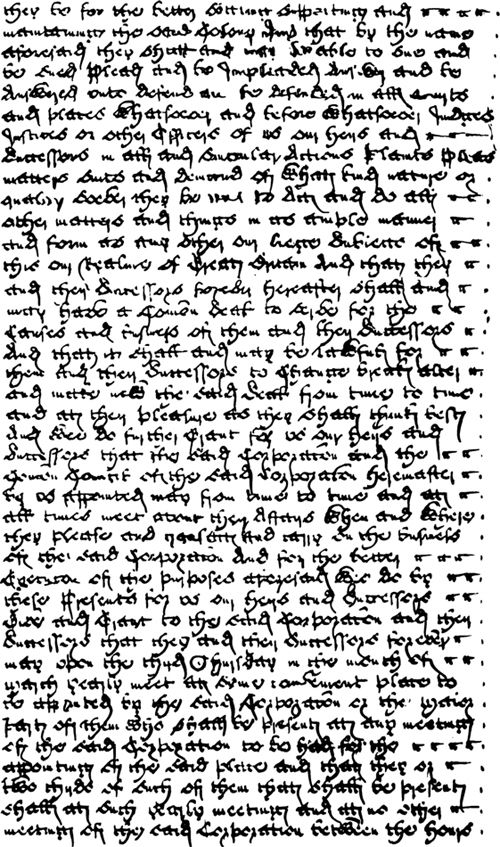 they be for the better Setting Supporting and
maintaining the said Colony And that by the name
aforesaid they shall and may be able to Sue and
be Sued Plead and be Impleaded Answer and be
Answered unto defend and be defended in all Courts
and places Whatsoever and before Whatsoever Judges
Justices or other Officers of us our heirs and
Successors in all and Singular Actions Plaints Pleas
matters Suits and demand of What kind nature or
quality Soever they be and to Act and do all
other matters and things in as ample manner
and form as any other our liege Subjects of
this our Realme of Great Britain And that they
and their Successors forever hereafter shall and
may have a Comon Seal to serve for the
Causes and business of them and their Successors
And that it shall and may be lawfull for
them and their Successors to Change break alter
and make new the said Seal from time to time
and at their pleasure as they shall think best
And Wee do further Grant for us our heirs and
Successors that the said Corporation and the
Comon Council of the said Corporation hereinafter
by us appointed may from time to time and at
all times meet about their Affairs When and Where
they please and transact and carry on the business
of the said Corporation And for the better
Execution of the purposes aforesaid Wee do by
these Presents for us our heirs and Successors
Give and Grant to the said Corporation and their
Successors that they and their Successors forever
may upon the third Thursday in the month of
March yearly meet at some convenient place to
be appointed by the said Corporation or the major
part of them Who shall be present at any meeting
of the said Corporation to be had for the
appointing of the said place and that they or
two thirds of such of them that shall be present
shall at such yearly meeting and at no other
meeting of the said Corporation between the hours